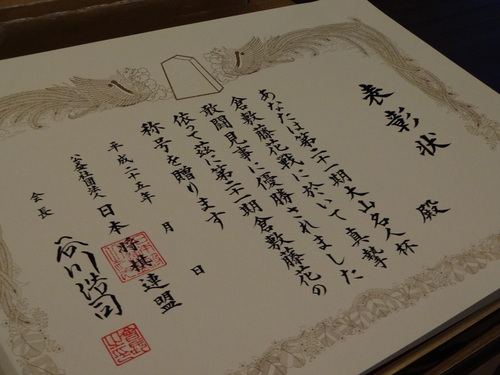 表彰状
殿
あなたは第二十一期大山名人杯
倉敷藤花戦に於いて真摯
敢闘見事に優勝されました
依って茲に第二十一期倉敷藤花の
称号を贈ります
平成二十五年 月 日
公益社団法人 日本将棋連盟
会長 谷川浩司